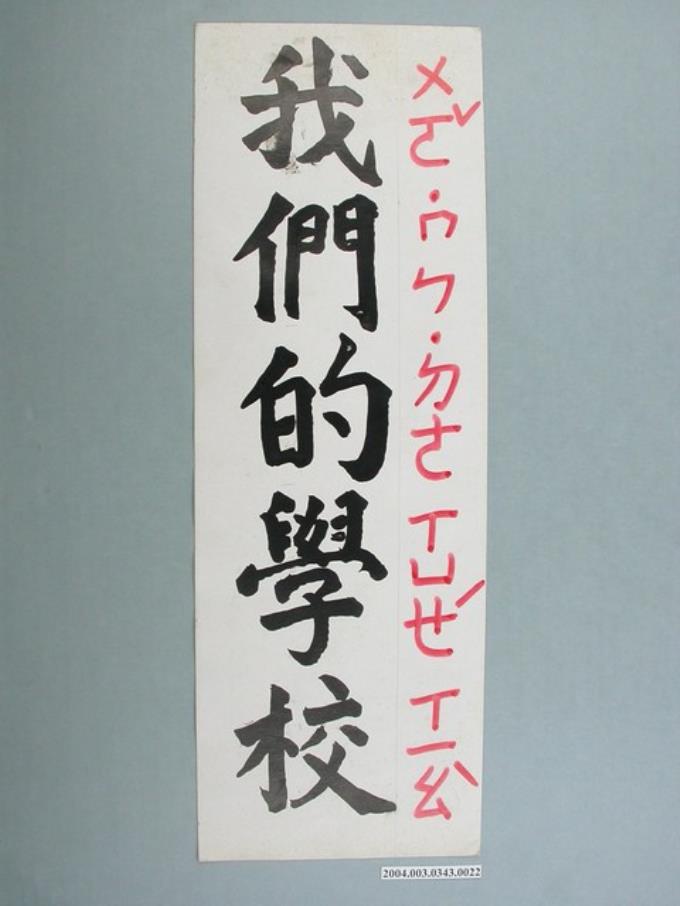 我們的學校
ㄨㄛˇ ˙ㄇㄣ ˙ㄉㄜ ㄒㄩㄝˊ ㄒㄧㄠˋ
2004.003.0343.0022